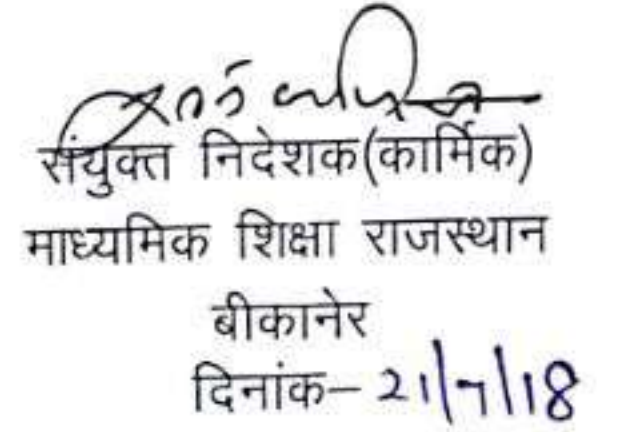 संयुक्त निदेशक(कार्मिक)
माध्यमिक शिक्षा राजस्थान
बीकानेर
दिनांक– 21/7/18